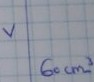 V
60cm³